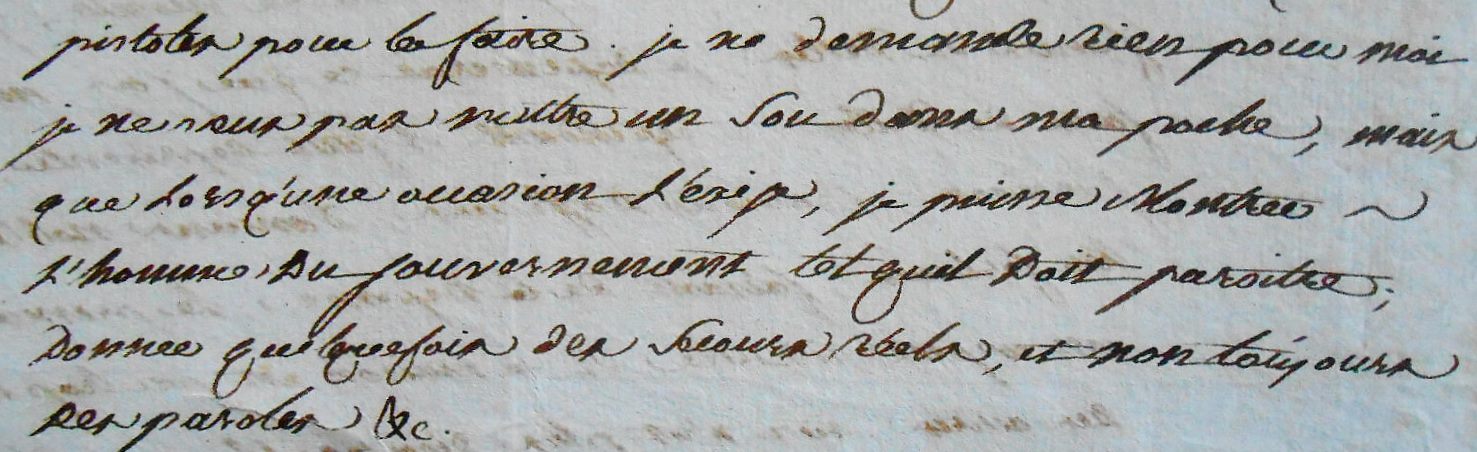 pistoles pour les faire. je ne demande rien pour moi
je ne veux pas mettre un sou dans ma poche, mais
que lorsqu'une occasion l'exige, je puisse Montrer ~
L'homme du gouvernement tel qu'il Doit paroitre;
Donner quelquefois des secours réels, et non toujours
des paroles &c.